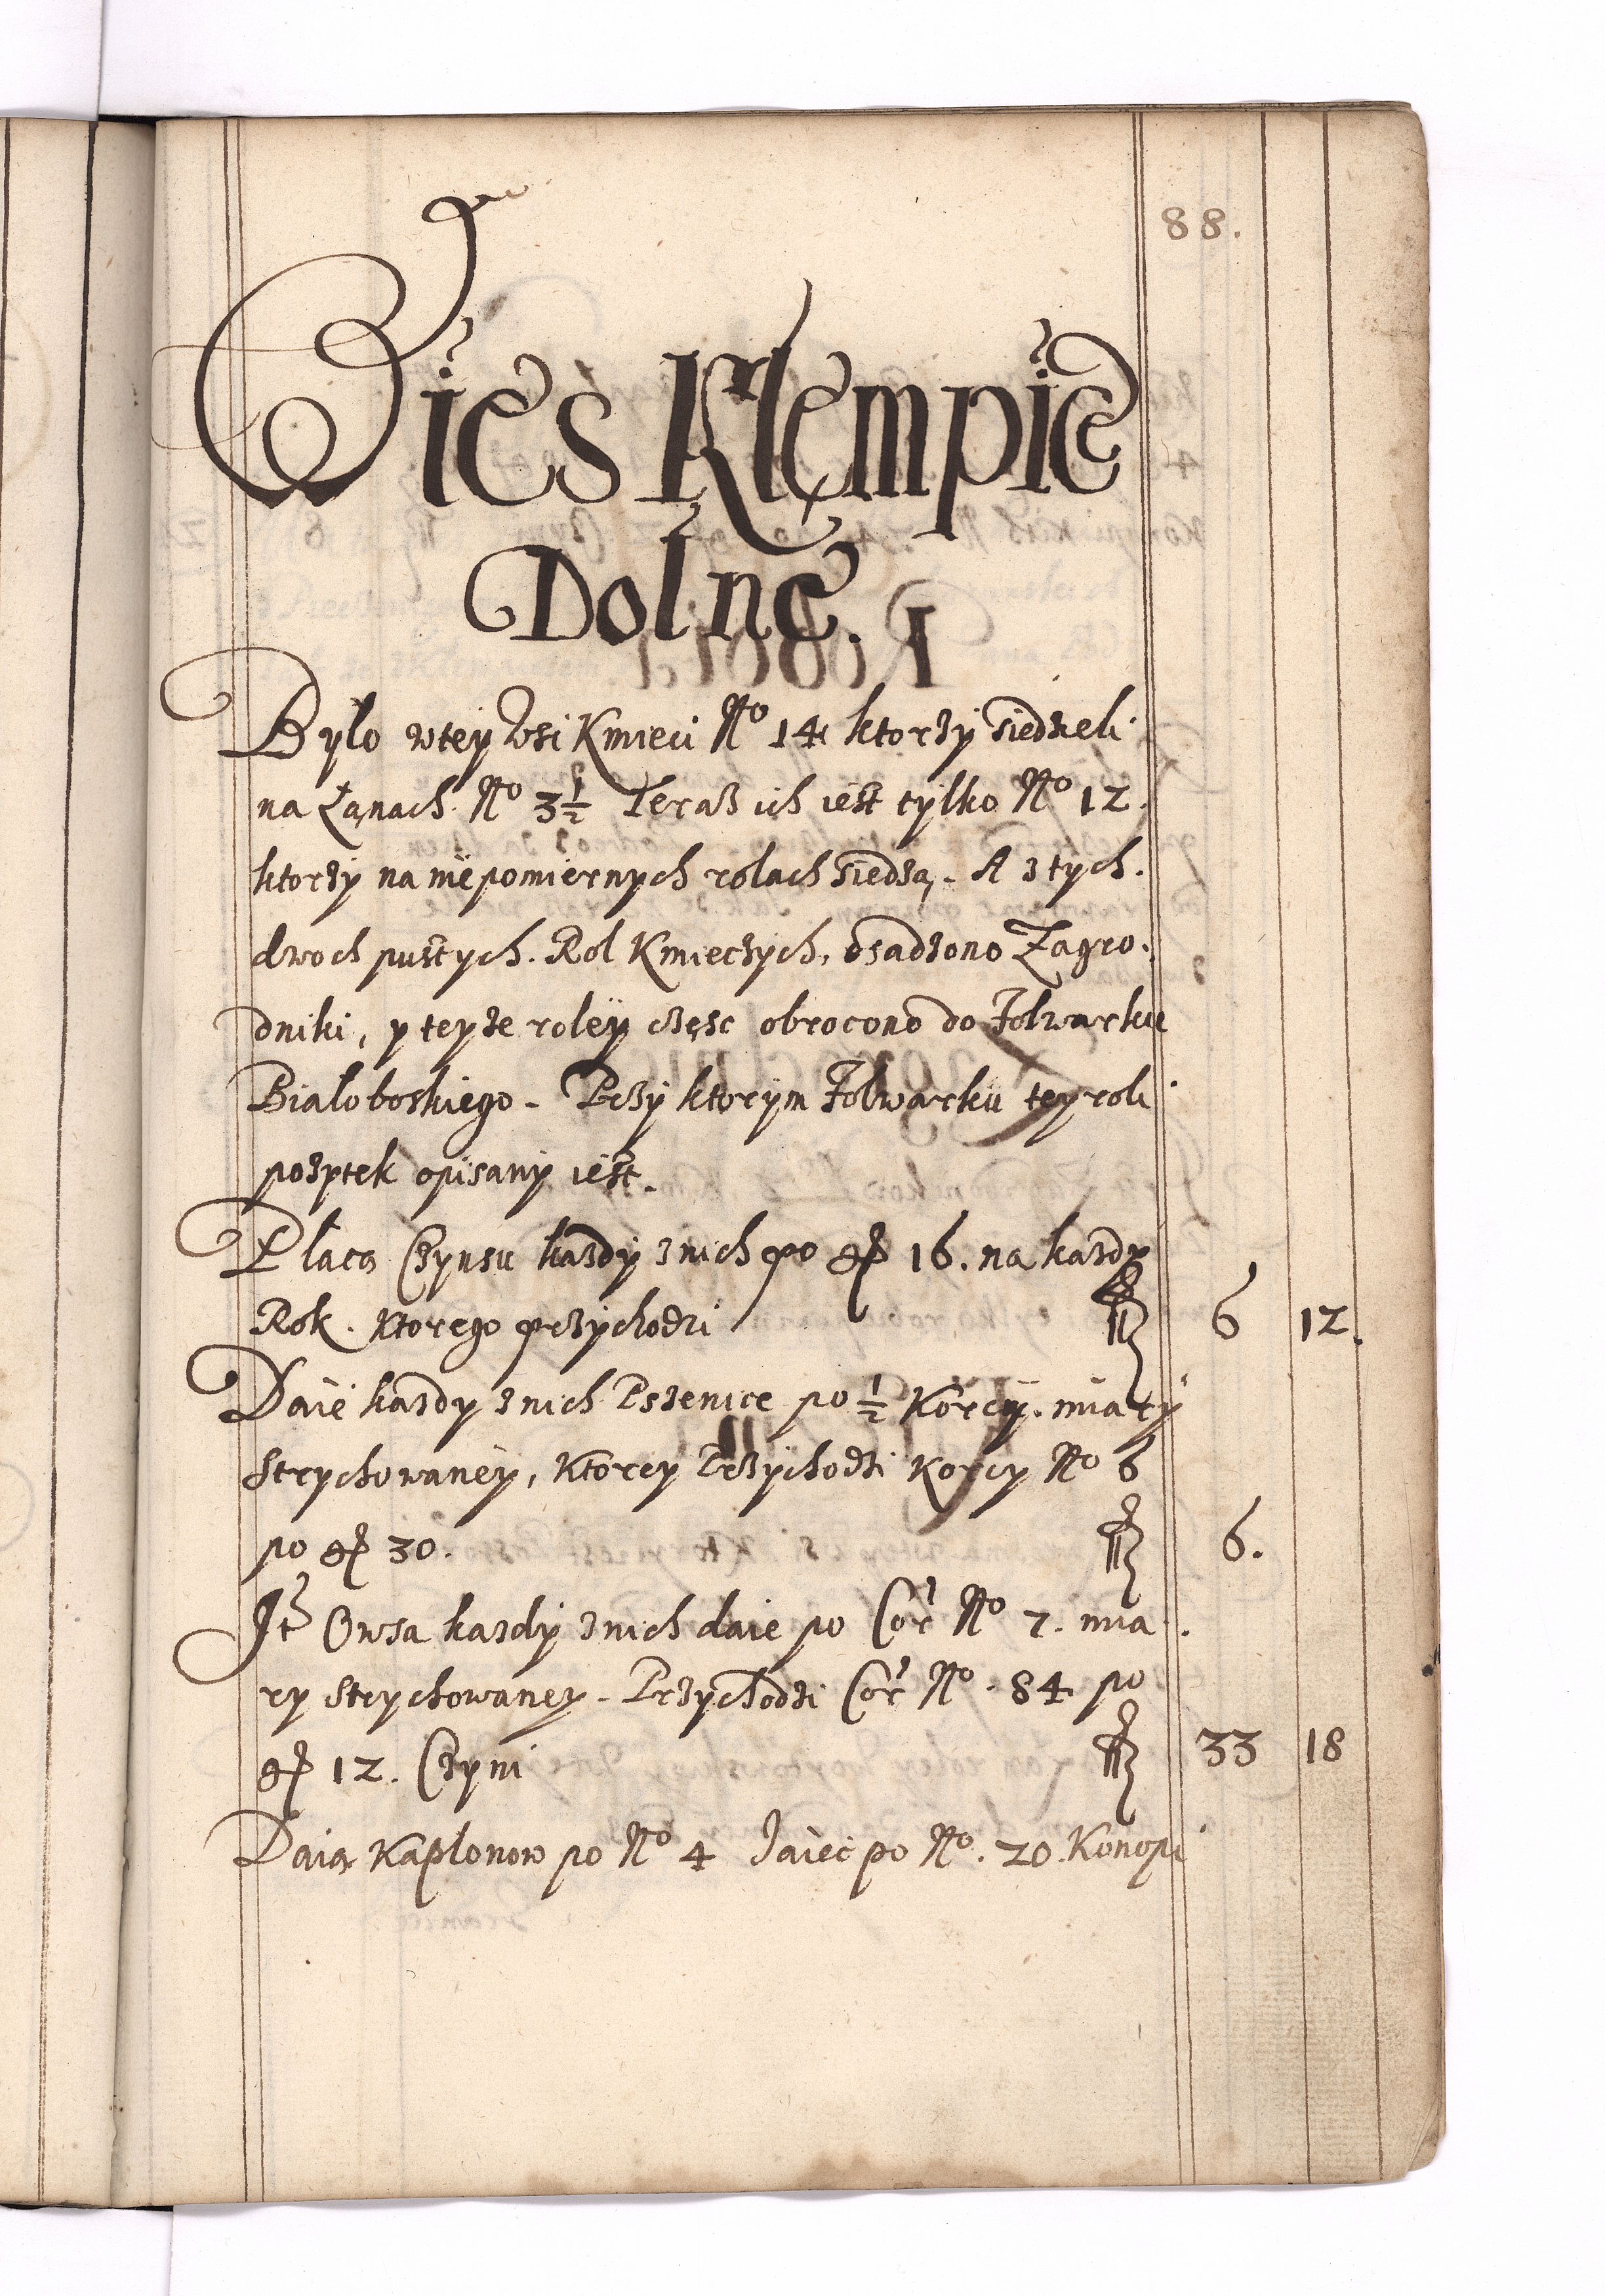 88.
Wieś Klęmpie
Dolne.
Bylo wtey wsi Kmieci No 14 ktorzy siedzieli
na Łanach No 3½ Teraz ich iest tylko No 12.
ktorzy na niepomiernych rolach siedzą. A z tych
dwoch pustych. Rol Kmieczych, osadzono Zagro
dniki, y teyze roley częsc obrocono do Folwarku
Bialoboskiego. Przy ktorym Folwarku tey roli
pozytek opisany iest.
Placą Czynsu kazdy znich po gr 16. na kazdy
Rok. Ktorego przychodzi fl 6 12.
Daie kazdy znich Pszenice po ½ Korcy. miary
Strychowaney, Ktorey Przychodzi Korcy No 6
po gr 30. fl 6.
It Owsa kazdy znich daie po Cor No 7. mia
ry Strychowaney. Przychodzi Cor No. 84 po
gr 12. Czyni fl 33 18
Daią Kaplonow po No 4 Jaiec po No. 20 Konopi